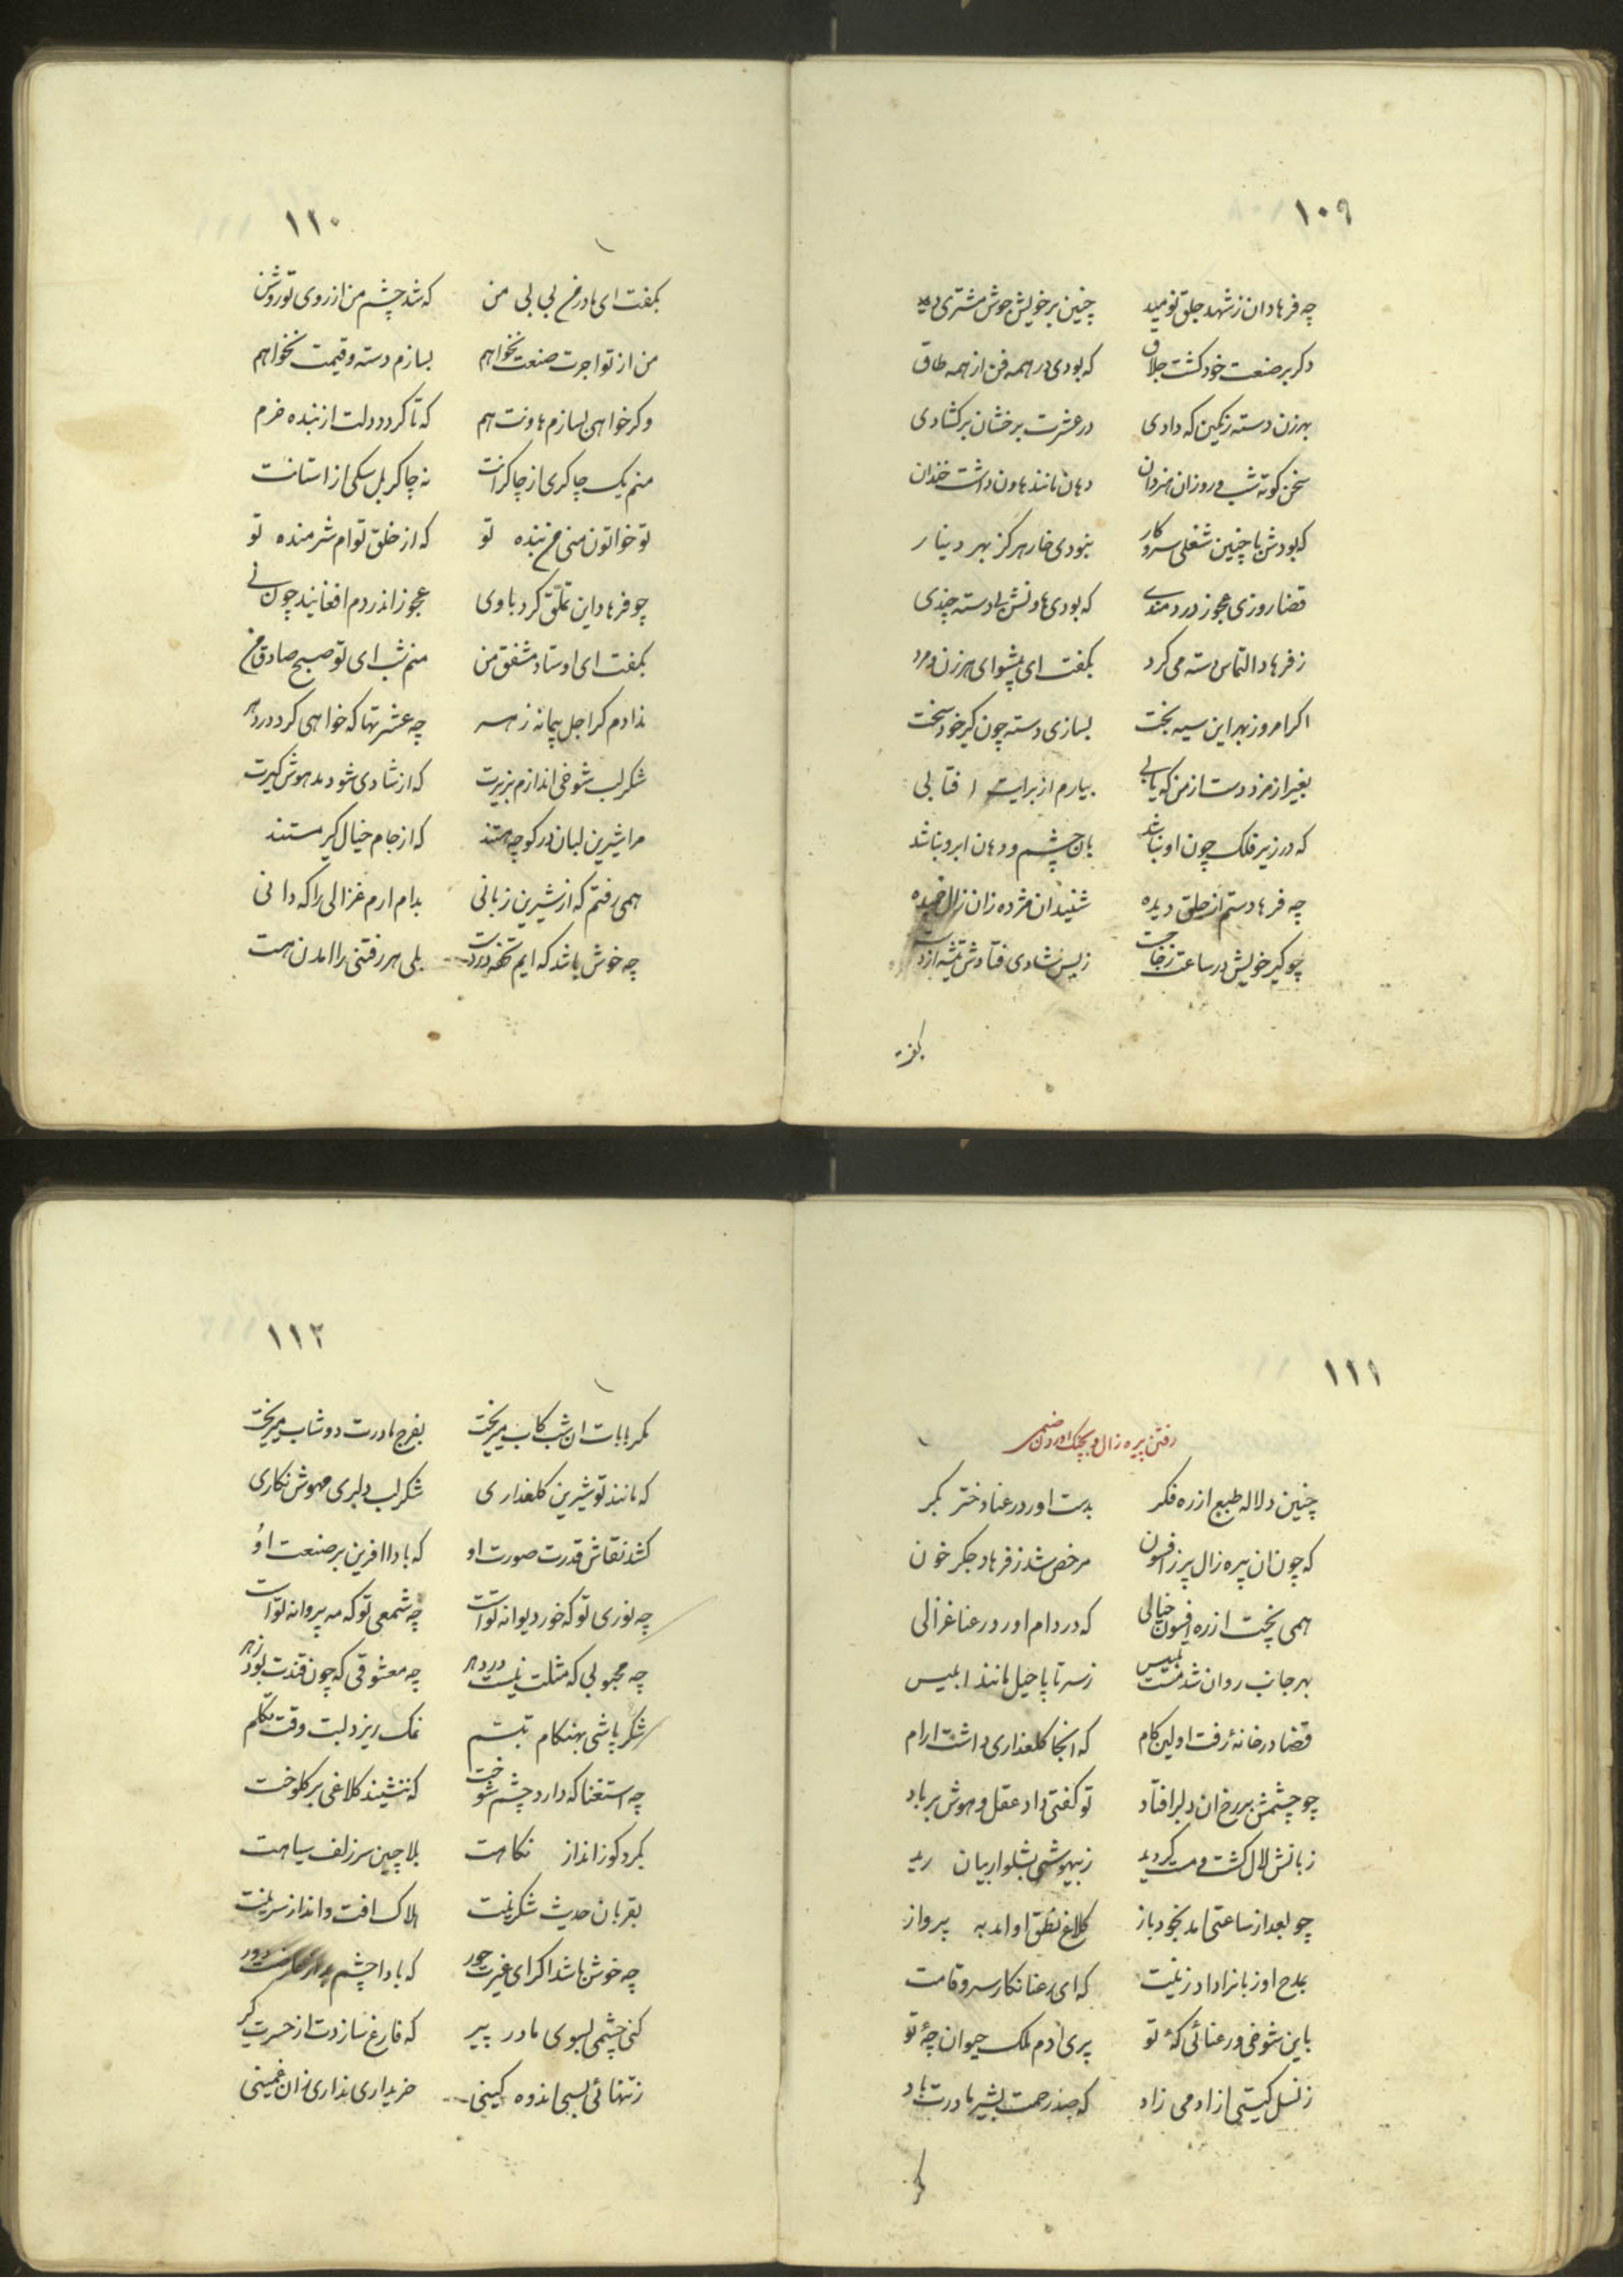 ۱۰۹
چه فرهاد ان ز شهد جلق نومید چنین بر خویش جوش مشتری دید
دکر بر صنعت خود کشت جلاق که بودی در همه فن از همه طاق
بهر زن دسته رنکین که دادی در عشرت برخشان بر کشادی
سخن کوته شب و روز ان هنردان دهان مانند هاون داشت خندان
که بودش با چنین شغلی سر و کار نبودی خار هرکز بهر دینار
قضا روزی عجوز دردمندی که بودی هاونش را دسته چندی
ز فرهاد التماس دسته می کرد بکفت ای پیشوای هر زن و مرد
اکر امروز بهر این سیه بخت بسازی دسته چون کیر خود سخت
بغیر از مزد دست از من که یابی بیارم از برایت افتابی
که در زیر فلک چون او نباشد بان چشم و دهان ابرو نباشد
چه فرهاد ستم از جلق دیده شنید ان مژده زان زال خمیده
چو کیر خویش در ساعت ز جا جست ز بس شادی فتادش تیشه از دست
بکفت
۱۱۰
بکفت ای مادر من بی بی من که شد چشم من از روی تو روشن
من از تو اجرت صنعت نخواهم بسازم دسته و قیمت نخواهم
وکر خواهی بسازم هاونت هم که تا کردد دلت از بنده خرم
منم یک چاکری از چاکرانت نه چاکر بل سکی از استانت
تو خاتون منی من بنده تو که از خلق توام شرمنده تو
چو فرهاد این تملق کرد با وی عجوز اندر دم افغانید چون نی
بکفت ای اوستاد مشفق من منم شب ای تو صبح صادق من
نذادم کر اجل پیمانه زهر چه عشرتها که خواهی کرد در دهر
شکر لب شوخی اندازم بزیرت که از شادی شود مدهوش کیرت
مرا شیرین لبان در کوچه هستند که از جام خیال کیر مستند
همی رفتم که از شیرین زبانی بدام ارم غزالی را که دانی
چه خوش باشد که ایم تحفه در دست بلی هر رفتنی را امدن هست
۱۱۱
رفتن پیره زال و بچنک اوردن صنمی
چنین دلاله طبع از ره فکر بدست اورد رعنا دختر بکر
که چون ان پیره زال پر ز افسون مرخص شد ز فرهاد جکر خون
همی پخت از ره افسون خیالی که در دام اورد رعنا غزالی
بهر جانب روان شد مست تلبیس ز سر تا پا حیل مانند ابلیس
قضا در خانهٔ رفت اولین کام که انجا کلعذاری داشت ارام
چو چشمش بر رخ ان دلبر افتاد تو کفتی داد عقل و هوش بر باد
زبانش لال کشت و مست کردید ز بیهوشی بشلوار بیان رید
چو بعد از ساعتی امد بخود باز کلاغ نطق او امد به پرواز
بمدح او زبانرا داد زینت که ای رعنا نکار سرو قامت
باین شوخی و رعنائی کهٔ تو پری ادم ملک حیوان چهٔ تو
ز نسل کیستی از ادمی زاد که صد رحمت بشیر مادرت باد
مکر
۱۱۲
مکر بابات ان شب کاب میریخت بفرج مادرت دوشاب میریخت
که مانند تو شیرین کلعذاری شکر لب دلبری مهوش نکاری
کشد نقاش قدرت صورت او که بادا افرین بر صنعت او
چه نوری تو که خور دیوانه تو است چه شمعی تو که مه پروانه تو است
چه محبوبی که مثلت نیست در دهر چه معشوقی که چون قندت بود زهر
شکر پاشی بهنکام تبسم نمک ریزد لبت وقت تکلم
چه استغنا که دارد چشم شوخت که ننشیند کلاغی بر کلوخت
بمرد کوز انداز نکاهت بلا چین سر زلف سیاهت
بقربان حدیث شکرینت هلاک افت و انداز سرینت
چه خوش باشد اکر ای غیرت حور که بادا چشم دور
کنی چشمی بسوی مادر پیر که فارغ سازدت از حسرت کیر
ز تنهائی بسی اندوه کینی خریداری نداری زان غمینی